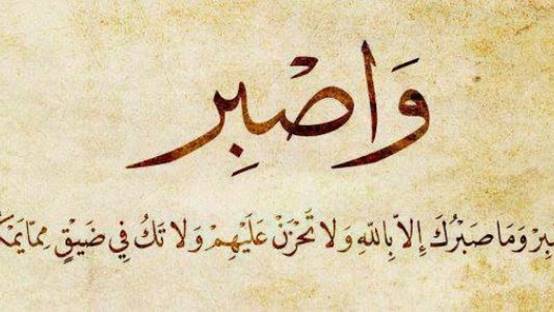 وَاصْبِرْ
بِرْ وَمَا صَبْرُكَ إِلاَّ بِاللَّهِ وَلاَ تَحْزَنْ عَلَيْهِمْ وَلاَ تَكُ فِي ضَيْقٍ مِمَّا يَمْكُ